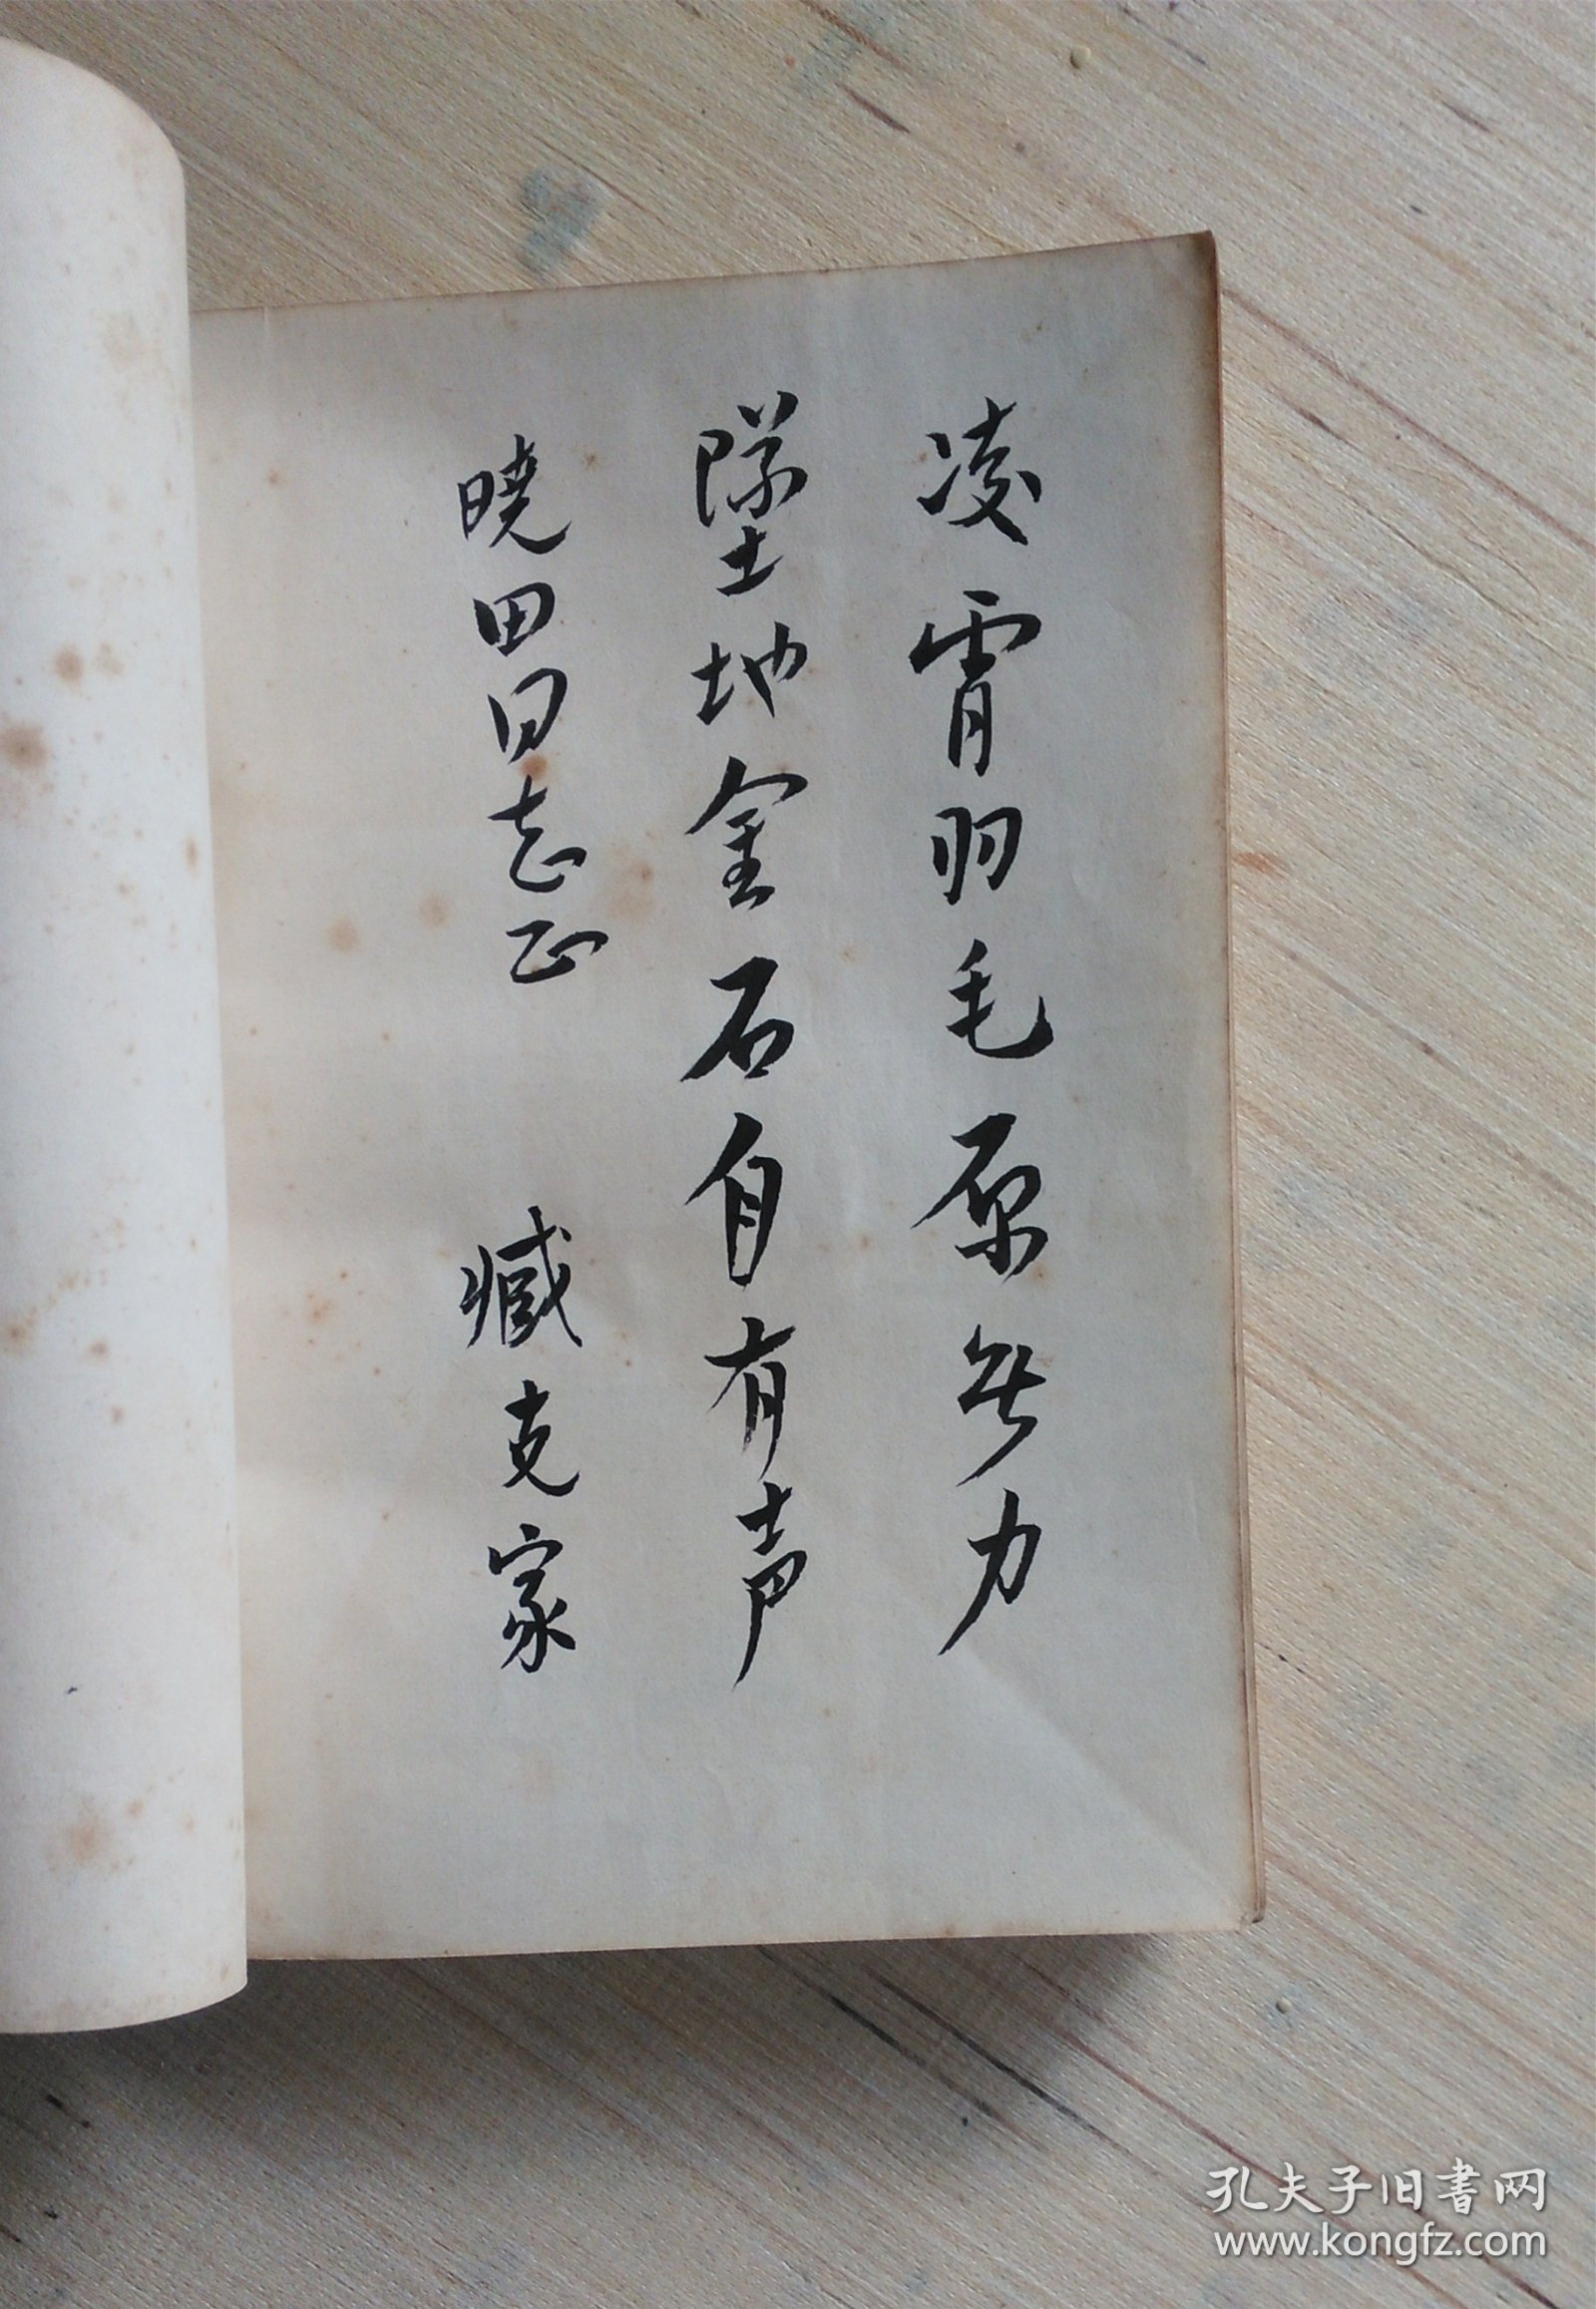 凌霄羽毛原无力
坠地金石自有声
晓田同志正
臧克家
孔夫子旧书网
www.kongfz.com